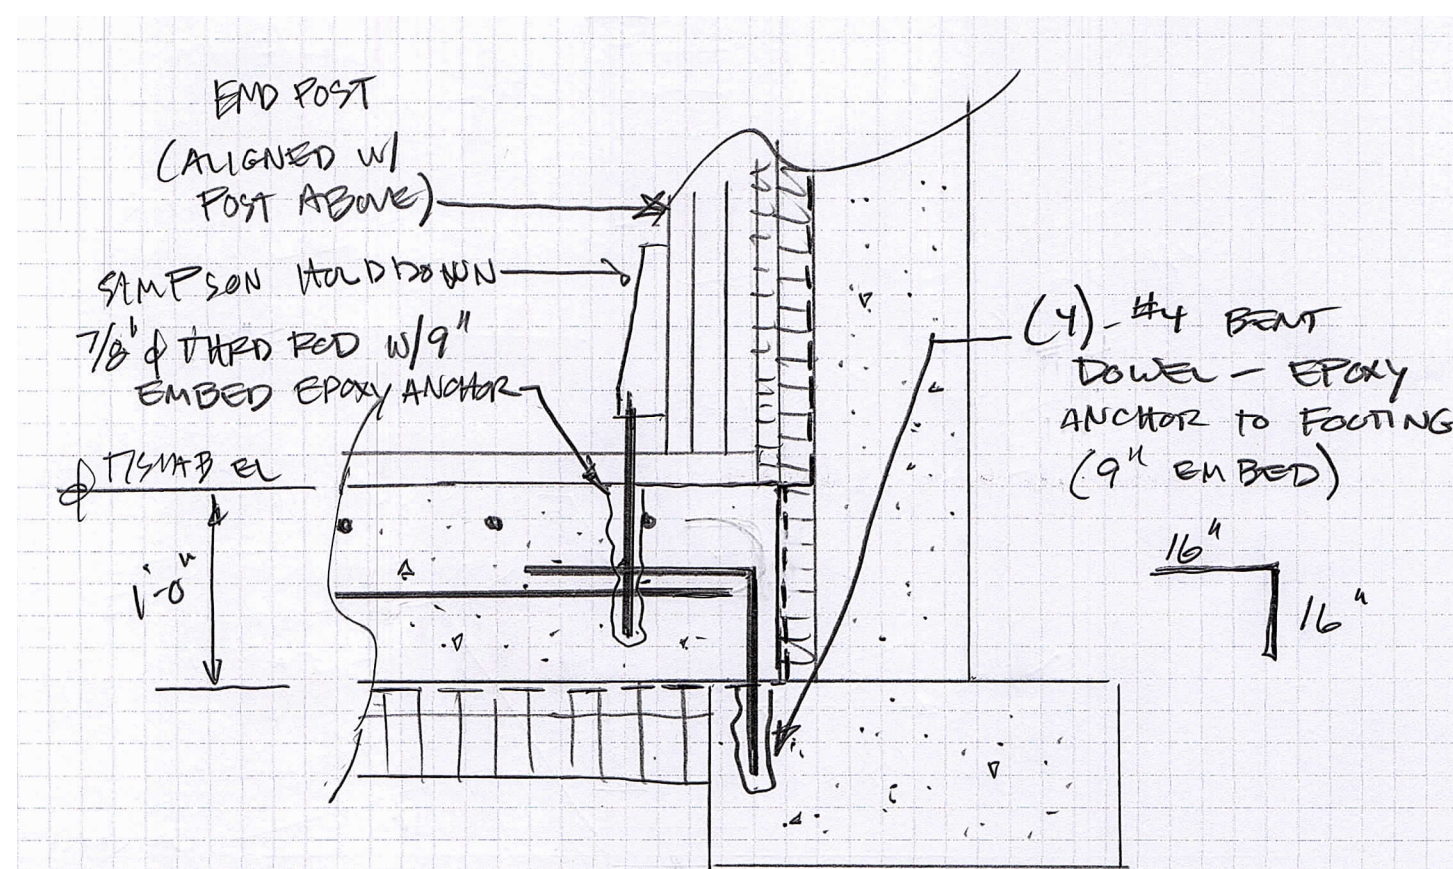 END POST
(ALIGNED W/
POST ABOVE)
SIMPSON HOLDDOWN
7/8" ϕ THRD ROD W/9"
EMBED EPOXY ANCHOR
T/SLAB EL
1'-0"
(4) - #4 BENT
DOWEL - EPOXY
ANCHOR TO FOOTING
(9" EMBED)
16"
16"